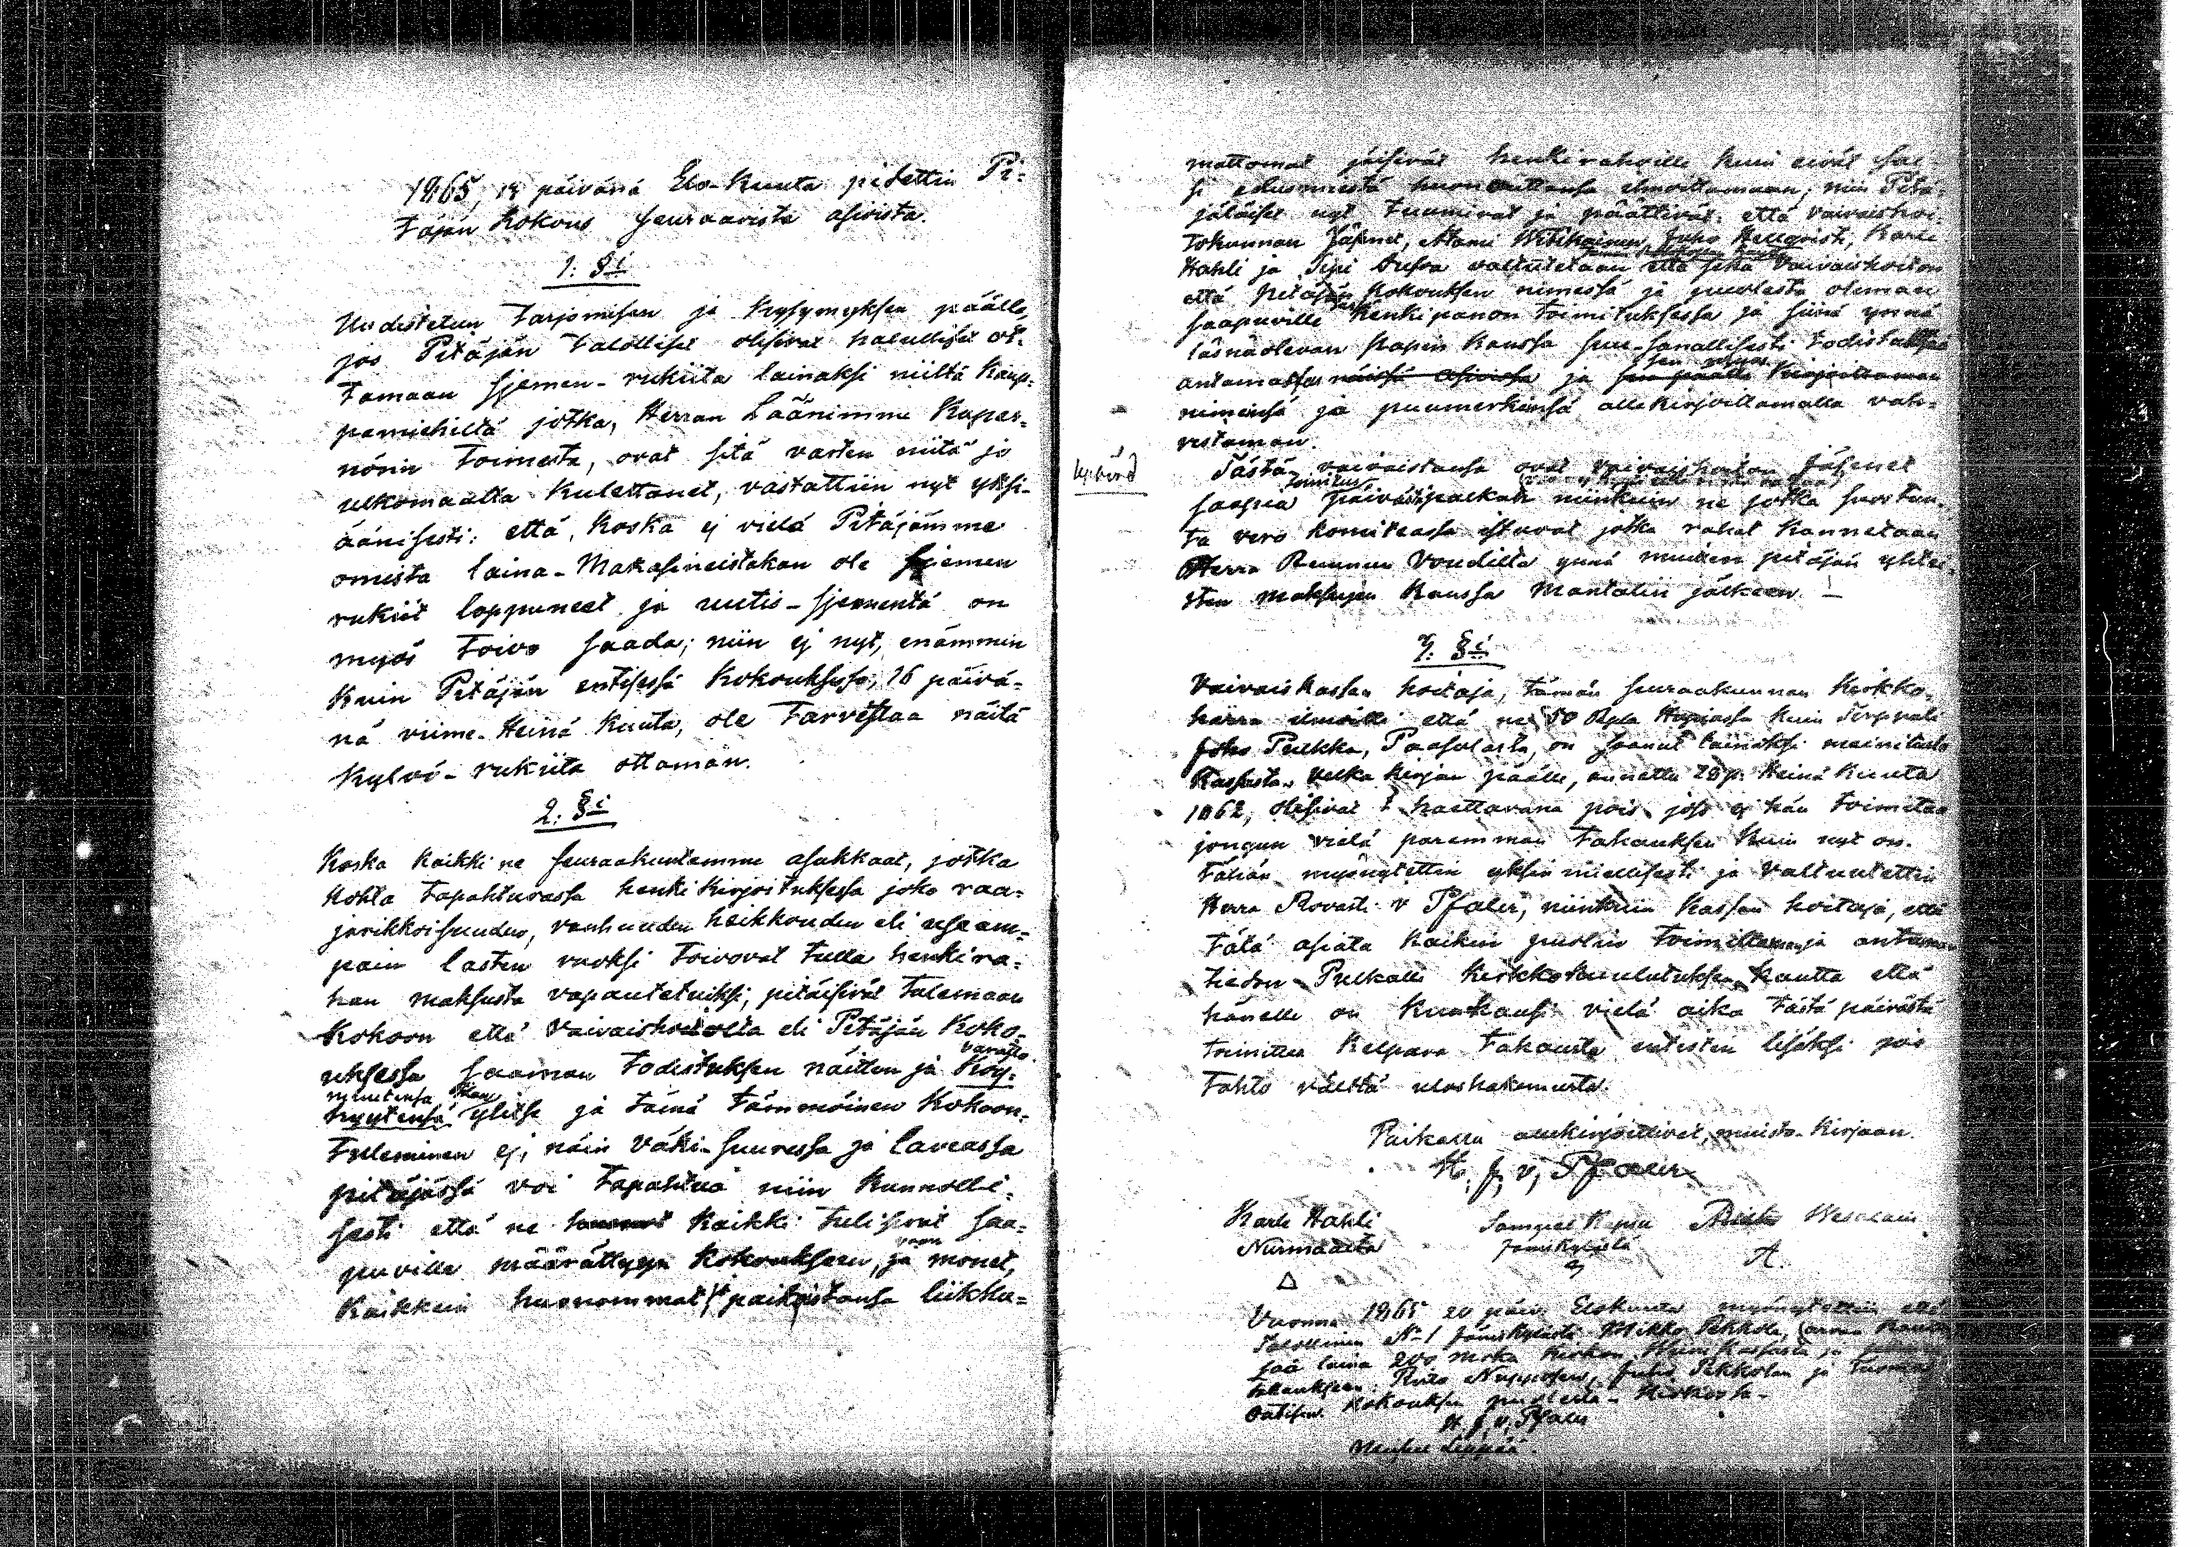 1865, 18 päivänä Elo-Kuuta pidettin Pi-
täjän Kokous seuraavista asioista.
1: §i
Uudistetun tarjomisen ja Kysymyksen päälle,
jos Pitäjän talolliset olisivat halulliset ot-
tamaan sjemen-rukiita lainaksi niiltä Kaup-
pamiehiltä jotka, Herran Läänimme Kuver-
nörin toimesta, ovat sitä varten niitä jo
ulkomaalta Kulettanet, vastattiin nyt yksi-
äänisesti: että, Koska ej vielä Pitäjämme
omista laina-Makasineistakan ole sjemen
rukiit loppuneet ja uutis-sjementä on
myös toivo saada; niin ej nyt, enämmin
Kuin Pitäjän entisessä Kokouksessa, 16 päivä-
nä viime-Heinä Kuuta, ole tarvista näitä
Kylvö-rukiita ottaman.
2: §i
Koska Kaikki ne seuraakuntamme asukkaat, jotka
Kohta tapahtuvassa henki Kirjoituksessa joko raa-
jarikkoisuuden, vanhuuden heikkouden eli useam-
pain lasten vuoksi toivovat tulla henki ra-
han maksusta vapautetuiksi, pitäisivät tulemaan
Kokoon että Vaivaishoidolta eli Pitäjän Koko-
uksessa saaman todistuksen näitten ja Köy-
varatto-
muutensa
hyytensä ylitse ja tämä tämmöinen Kokoon-
tuleminen ej, näin väki-suuressa ja laveassa
pitäjässä voi tapahtua niin Kunnolli-
sesti että ne Kaikki tulisivat saa-
puville määrättyyn Kokoukseen, ja monet,
vaan
Kaikkein huonommat paikoistansa liikku-
mattomat jäisivät henkirahoille Kuin eivät saa-
si edusmiestä huonouttansa ilmoittamaan; niin Pitä-
jäläiset nyt tuumivat ja päättivät: että vaivaishoi-
tokunnan Jäsenet, Juho Hellqvisti, Karle
Hahli ja valtuutetaan että sekä Vaivaishoiton
että Pitäjän Kokouksen nimessä ja puolesta oleman
saapuville henkipanon toimituksessa ja siinä ynnä
läsnäolevan Papin Kanssa suu-sanallisesti todistuksia
antamassa näissä asioissa ja sen päälle Kirjoittaman
sen myös
nimensä ja puumerkinsä allekirjoittamalla vah-
vistaman.
Tästä vaivaistansa ovat vaivaishoiton Jäsenet
toimitus
saapia päiväpalkan niinkuin ne jotka suostun-
ta vero Komiteassa istuvat jotka rahat Kannetaan
Herra Ruunun Voudilta ynnä muitten pitäjän yhtei-
sten maksujen Kanssa Mantalin jälkeen. –
3: §i
Vaivais Kassan hoitaja, tämän seuraakunnan Kirkko-
herra ilmoitti että ne 50 Rpla Hopiassa Kuin Torppari
Juho Pulkka, on saanut lainaksi mainitusta
Kassasta velka Kirjan päälle, annettu 28 p. Heinä Kuuta
1862, olisivat haettavana pois, jos ej hän toimitaa
jongun vielä paremman takauksen Kuin nyt on.
Tähän myönyttettin yksimielisesti ja Valtuutettin
Herra Rovasti v Pfaler, niinkuin Kassan hoitaja, että
tätä asiata Kaikin puolin toimittaman ja antaman
tiedon Pulkalle Kirkko Kuulutuksen Kautta että
hänelle on Kuukausi vielä aika tästä päivästä
toimittaa Kelpava takausta entisten lisäksi jos
tahto välttä uloshakemusta.
Paikassa allekirjoittivat, muisto-Kirjaan.
H. J. v. Pfaler
Karle Hahli
Nurmaalta
Vuonna 1865 20 päiv. Elokuuta myönytettiin että
Talollinen No 1 Mikko Pekkola,
saa laina 200 marka Kirkon
takaukseen Juho Pekkolan ja
Kokouksen puolesta
H. J. v. Pfaler